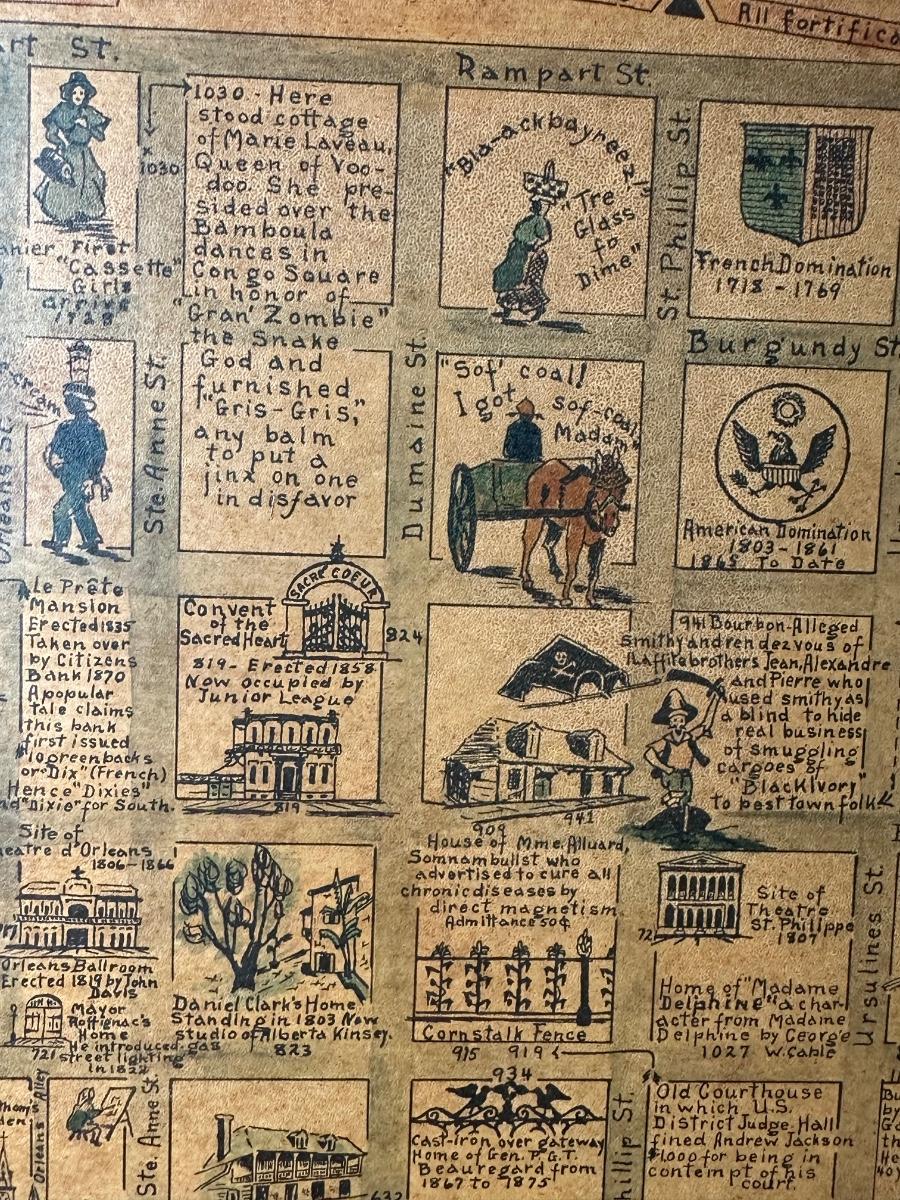 All fortifica
art St.
Rampart St.
1030
1030 - Here
stood cottage
of Marie Laveau,
Queen of Voo-
doo. She pre-
sided over the
Bamboula
dances in
Congo Square
in honor of
"Gran' Zombie"
the Snake
God and
furnished
"Gris-Gris,"
any balm
to put a
jinx on one
in disfavor
anier First
"Cassette"
Girls
arrive
1728
"Bla-ackbayneezl"
"Tre
Glass
fo
Dime"
St. Phillip St.
French Domination
1718 - 1769
Burgundy St.
Orleans St.
Ste. Anne St.
Dumaine St.
"Sof' coal!
I got
sof-coal
Madam"
American Domination
1803 - 1861
1865 To Date
Le Prête
Mansion
Erected 1835
Taken over
by Citizens
Bank 1870
A popular
tale claims
this bank
first issued
10 greenbacks
or "Dix" (French)
Hence "Dixies"
nd "Dixie" for South.
SACRE COEUR
Convent
of the
Sacred Heart
824
819 - Erected 1858
Now occupied by
Junior League
819
941 Bourbon-Alleged
smithy and rendezvous of
Laffite brothers Jean, Alexandre
and Pierre who
used smithy as
a blind to hide
real business
of smuggling
cargoes of
"Black Ivory"
to best town folk
941
909
House of Mme. Alluard,
Somnambulist who
advertised to cure all
chronic diseases by
direct magnetism
Admittance 50¢
Site of
eatre d'Orleans
1806-1866
717
Orleans Ballroom
Erected 1819 by John
Davis
Mayor
Roffignac's
Home
He introduced gas
721 street lighting
in 1822
Daniel Clark's Home
Standing in 1803 Now
studio of Alberta Kinsey.
823
Cornstalk Fence
915 919
Site of
Theatre
St. Philippe
1807
72
Home of "Madame
Delphine" a char-
acter from Madame
Delphine by George
1027 W. Cable
Ursulines St.
934
Cast-iron over gateway
Home of Gen. P.G.T.
Beauregard from
1867 to 1875
Old Courthouse
in which U.S.
District Judge Hall
fined Andrew Jackson
$1000 for being in
contempt of his
court.
Orleans Alley
Ste. Anne St.
hillip St.
632